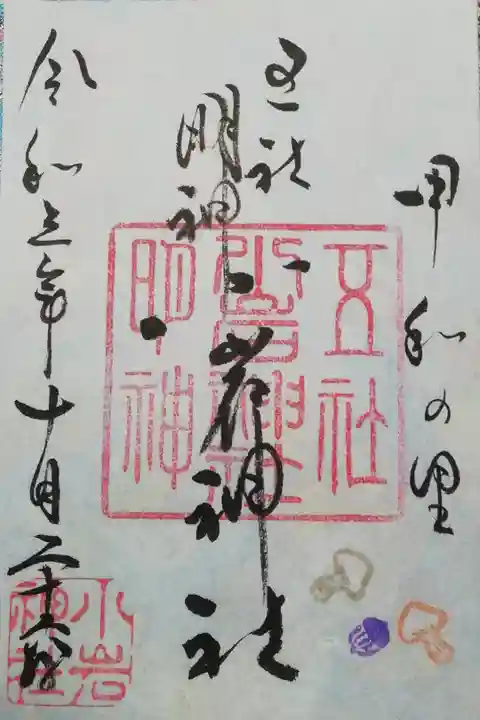 甲和の里
五社
明神
小岩神社
令和 年十月二十
五社
小岩神社
明神
小岩
神社